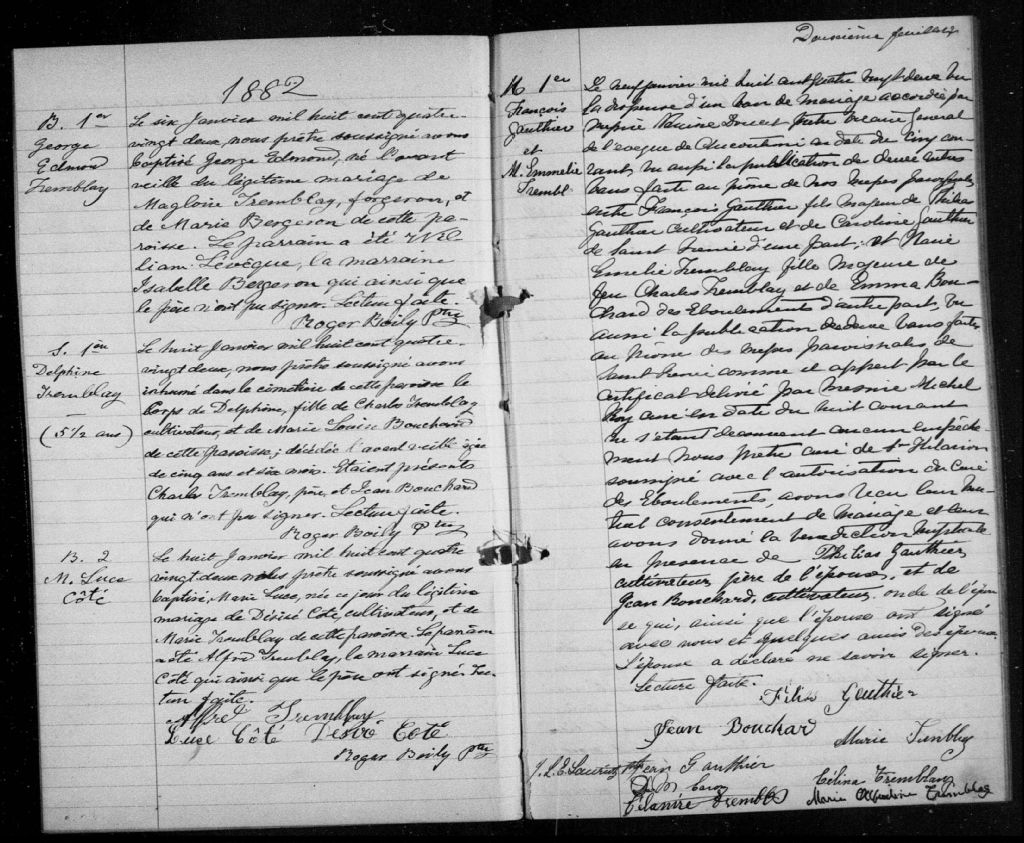 1882
B. 1er
George
Edmond
Tremblay
Le six Janvier mil huit cent quatre-
vingt deux, nous prêtre soussigné avons
baptisé George Edmond, né l'avant
veille du légitime mariage de
Magloire Tremblay, forgeron, et
de Marie Bergeron de cette pa-
roisse. Le parrain a été Wil-
liam Lévèque, la marraine
Isabelle Bergeron qui ainsi que
le père n'ont pu signer. Lecture faite.
Roger Boily ptre
S. 1er
Delphine
Tremblay
(5 1/2 ans)
Le huit Janvier mil huit cent quatre-
vingt deux, nous prêtre soussigné avons
inhumé dans le cimetière de cette paroisse le
corps de Delphine, fille de Charles Tremblay
cultivateur, et de Marie Louise Bouchard
de cette paroisse; décédée l'avant veille agée
de cinq ans et six mois. Etaient présents
Charles Tremblay, père, et Jean Bouchard
qui n'ont pu signer. Lecture faite.
Roger Boily ptre
B. 2
M. Luce
Côté
Le huit Janvier mil huit cent quatre
vingt deux nous prêtre soussigné avons
baptisé, Marie Luce, née ce jour du légitime
mariage de Désiré Coté, cultivateur, et de
Marie Tremblay de cette paroisse. Le parrain
a été Alfred Tremblay, la marraine Luce
Coté qui ainsi que le père ont signé. Lec-
ture faite.
Alfred Tremblay
Luce Côté Désiré Coté
Roger Boily ptre
Douzième feuillet
M 1er
François
Gauthier
et
M. Emmelie
Trembl
Le neuf janvier mil huit cent quatre vingt deux vu
la dispense d'un ban de mariage accordée par
Doucet Vicaire General
de l'eveque de Chicoutimi en date du cinq cou
rant, vu aussi la publication de deux autres
bans faite au prône de nos messes paroissiales
entre François Gauthier fils majeur de
Gauthier cultivateur et de Caroline Gauthier
de Saint Irenée d'une part; et Marie
Emelie Tremblay fille Majeure de
feu Charles Tremblay et de Emma Bou-
chard des Eboulements d'autre part, vu
aussi la publication de deux bans faites
au prône des messes paroissiales, de
Saint Irenée comme il appert par le
certificat délivré par messire Michel
Roy curé en date du huit courant
ne s'étant découvert aucun empêche-
ment Nous prêtre curé de St Hilarion
soussigné avec l'autorisation du curé
des Eboulements, avons reçu leur mu-
tuel consentement de mariage et leur
avons donné la benediction nuptiale
en presence de Gauthier
cultivateur père de l'époux, et de
Jean Bouchard, cultivateur oncle de l'épou
se qui, ainsi que l'épouse ont signé
avec nous et quelques amis des époux.
l'épouse a déclaré ne savoir signer.
Lecture faite.
Gauthier
Jean Bouchard
Marie
Gauthier
Célina Tremblay
Marie Tremblay